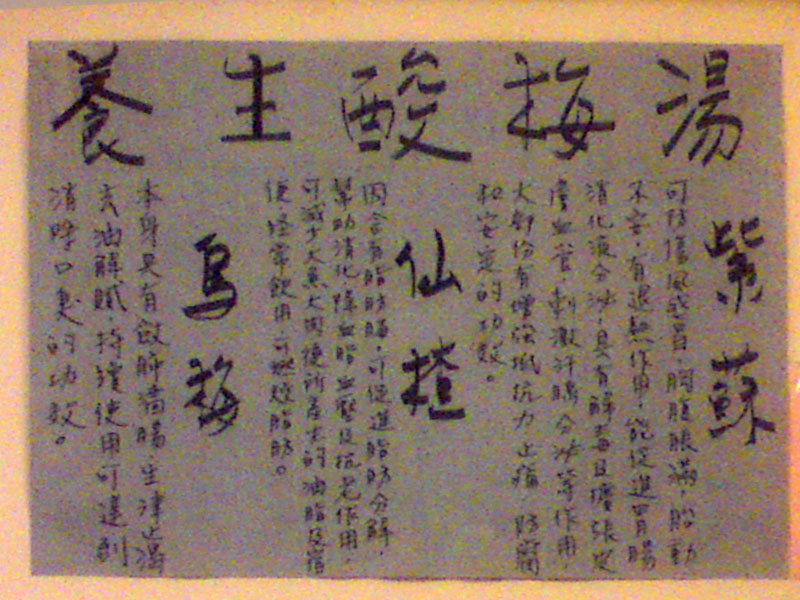 養生酸梅湯
紫蘇
可防傷風感冒,胸腹脹滿,胎動
不安,有退熱作用,能促進胃腸
消化液分泌,具有解毒且擴張皮
膚血管,刺激汗腺分泌等作用,
大部份有增強抵抗力 止痛 防腐
和安定的功效。
仙楂
因含有脂肪酶,可促進脂肪分解,
幫助消化,降血脂、血壓及抗老作用,
可減少大魚大肉後所產生的油脂及宿
便經常飲用,可燃燒脂肪。
烏梅
本身具有斂肺 腸,生津止渴
去油解膩,持續使用可達到
消 口臭的功效。